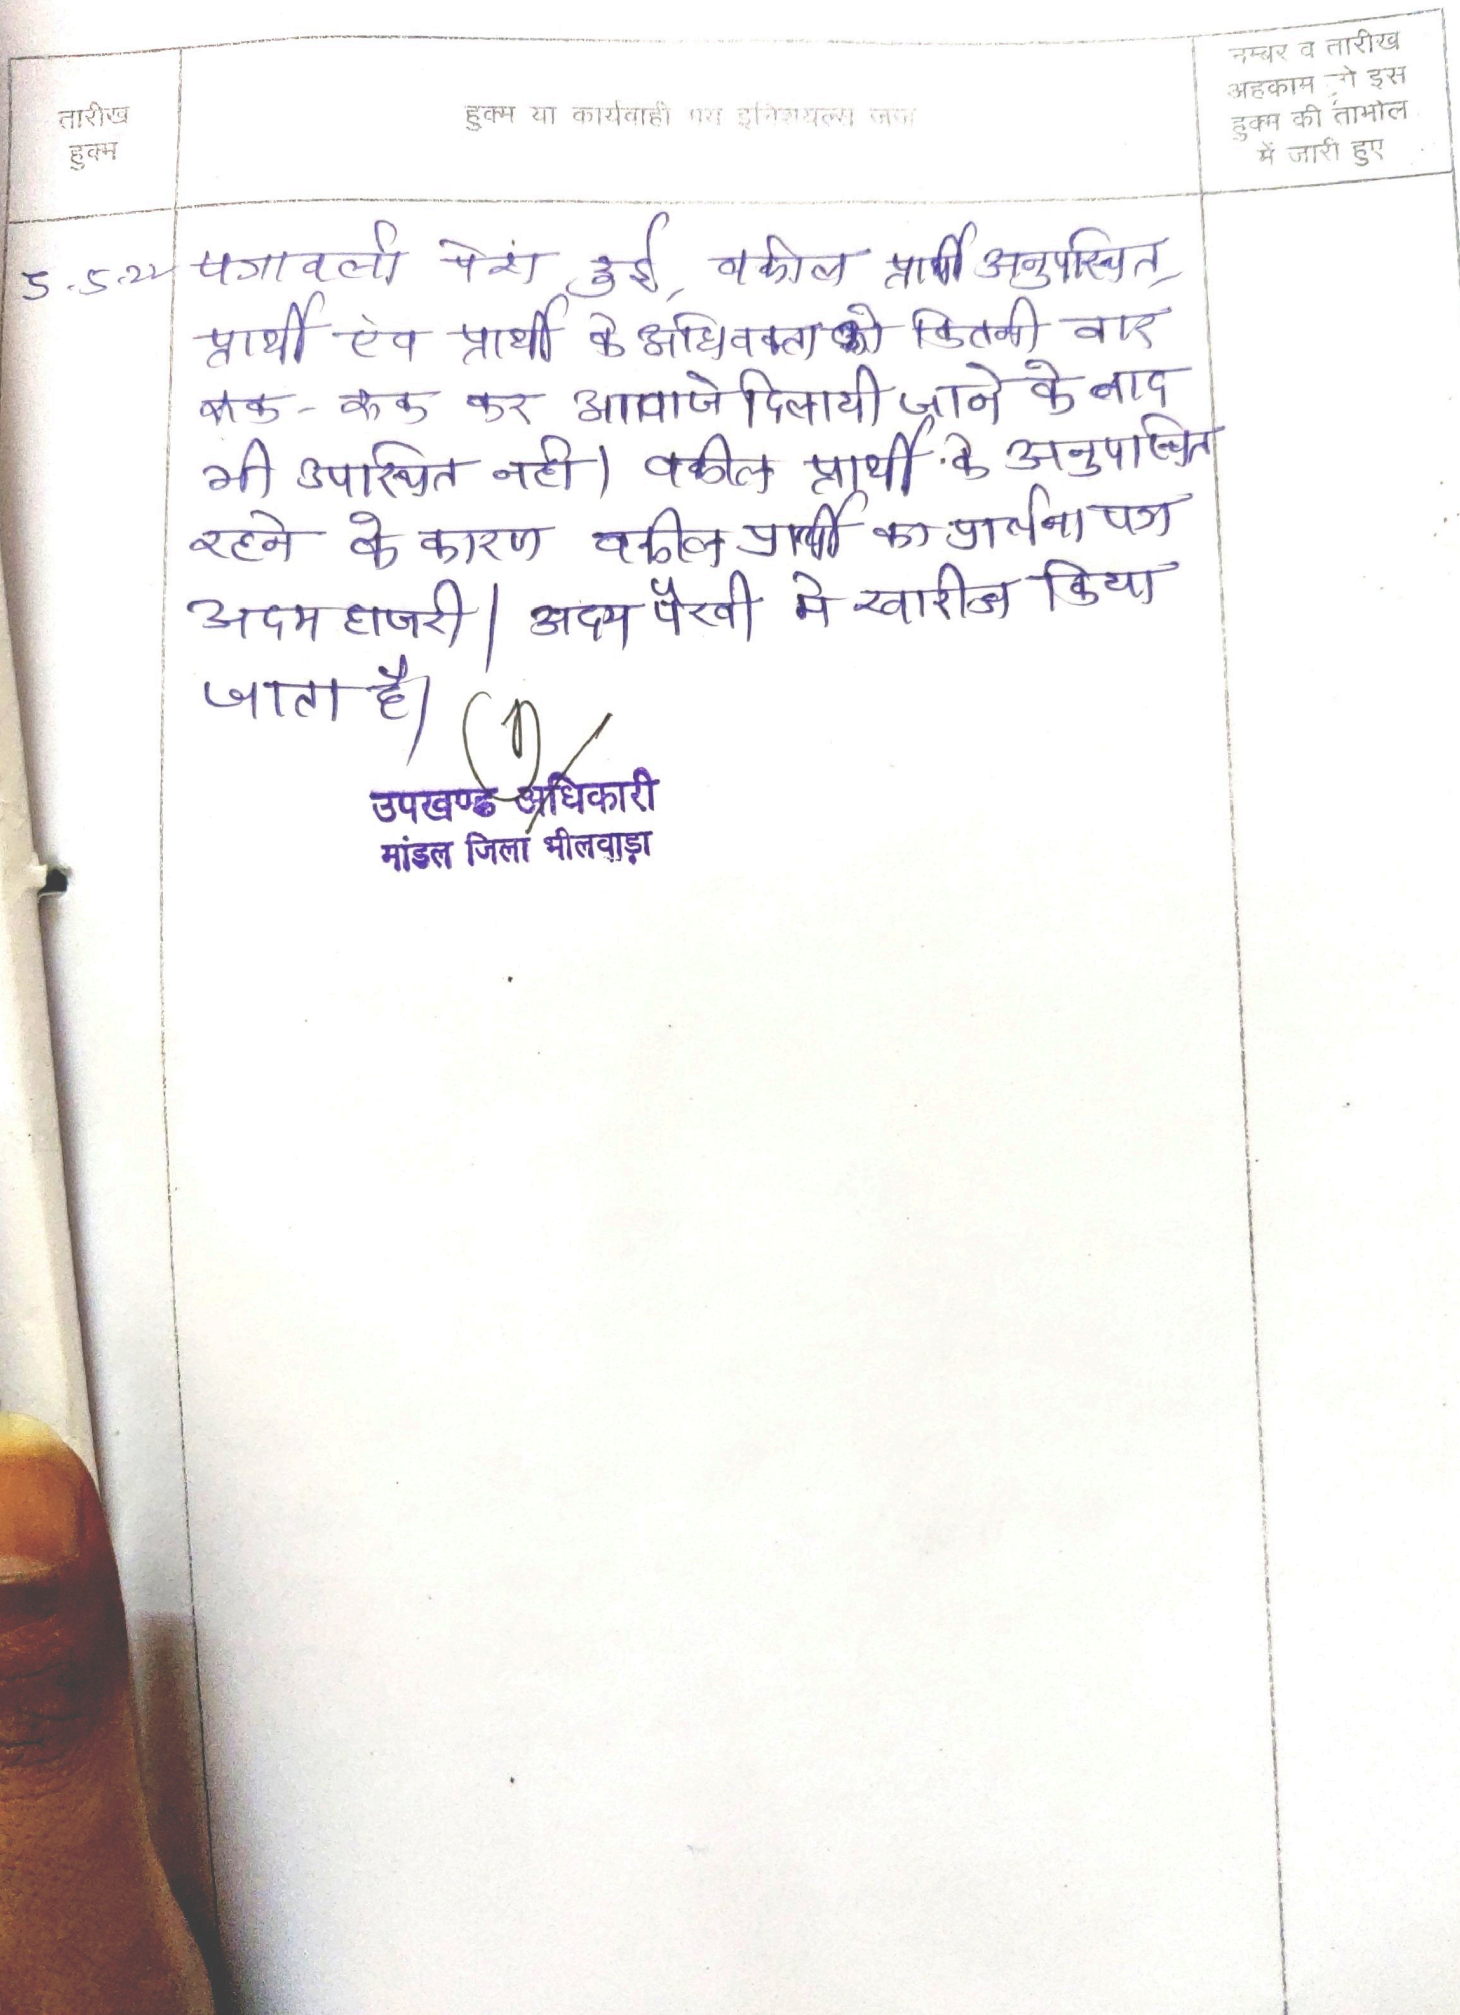 तारीख
हुक्म
हुक्म या कार्यवाही मय इनिशयल्स जज
नम्बर व तारीख
अहकाम जो इस
हुक्म की तामील
में जारी हुए
5.5.22 पत्रावली पेश हुई, वकील प्रार्थी अनुपस्थित,
प्रार्थी एंव प्रार्थी के अधिवक्ता को कितनी बार
रूक-रूक कर आवाजे दिलायी जाने के बाद
भी उपस्थित नही। वकील प्रार्थी के अनुपस्थित
रहने के कारण वकील प्रार्थी का प्रार्थना पत्र
अदम हाजरी/अदम पैरवी मे खारीज किया
जाता है।
उपखण्ड अधिकारी
मांडल जिला भीलवाड़ा